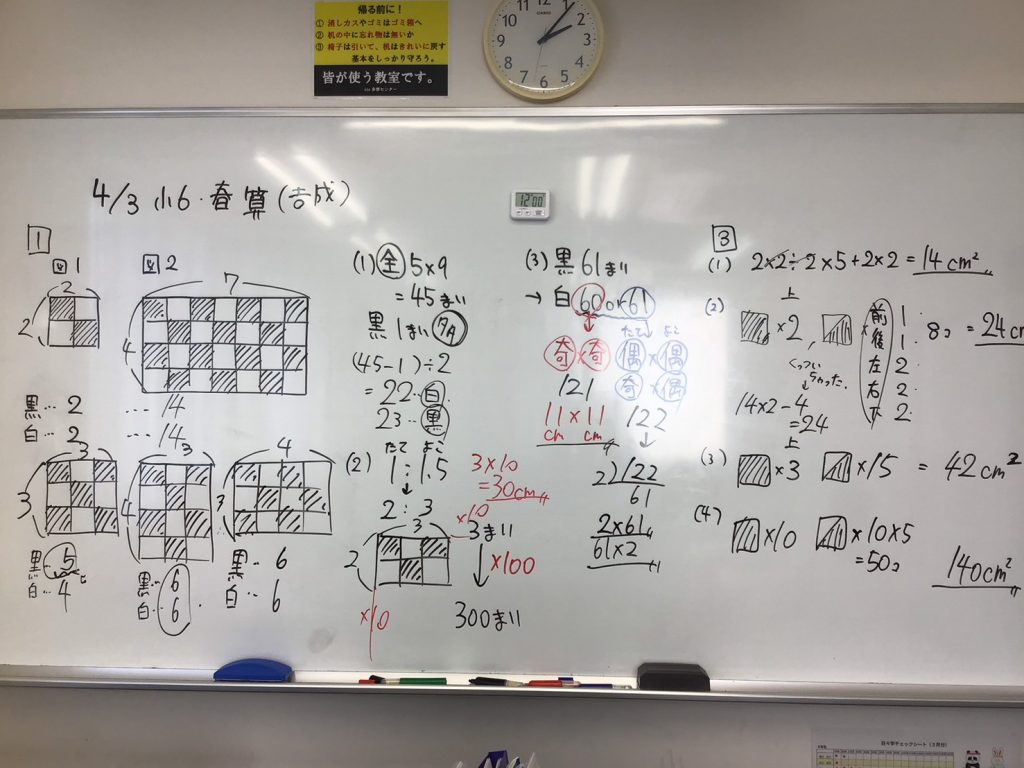 帰る前に!
① 消しカスやゴミはゴミ箱へ
② 机の中に忘れ物は無いか
③ 椅子は引いて、机はきれいに戻す
基本をしっかり守ろう。
皆が使う教室です。
12 1 2 3 4 5 6 7 8 9 10 11
CASIO
12:00
4/3 小6・春 算(吉成)
1
図1
2
2
黒‥ 2
白‥ 2
図2
7
4
… 14
… 14
3
3
黒‥ 5
白‥ 4
3
4
黒‥ 6
白‥ 6
4
3
黒‥ 6
白‥ 6
(1) 全 5×9
= 45まい
黒 1まい
(45-1)÷2
= 22‥白
23‥黒
(2) たて よこ
1 : 1.5
2 : 3
3
2
×10
×10
3×10
= 30cm
3まい
×100
300まい
(3) 黒 61まい
→ 白 60 or 61
たて よこ
奇×奇 偶×偶
奇×偶
121
11×11
cm cm
122
2)122
61
2×61
61×2
3
(1) 2×2÷2×5+2×2=14cm²
(2) 上
×2,
くっついちゃった。
×
前 1
後 1
左 2
右 2
下 2
8コ = 24cm
14×2-4
=24
(3) 上
×3 ×15 = 42cm²
(4) ×10 ×10×5
=50コ
140cm²
日々学チェックシート(3月分)